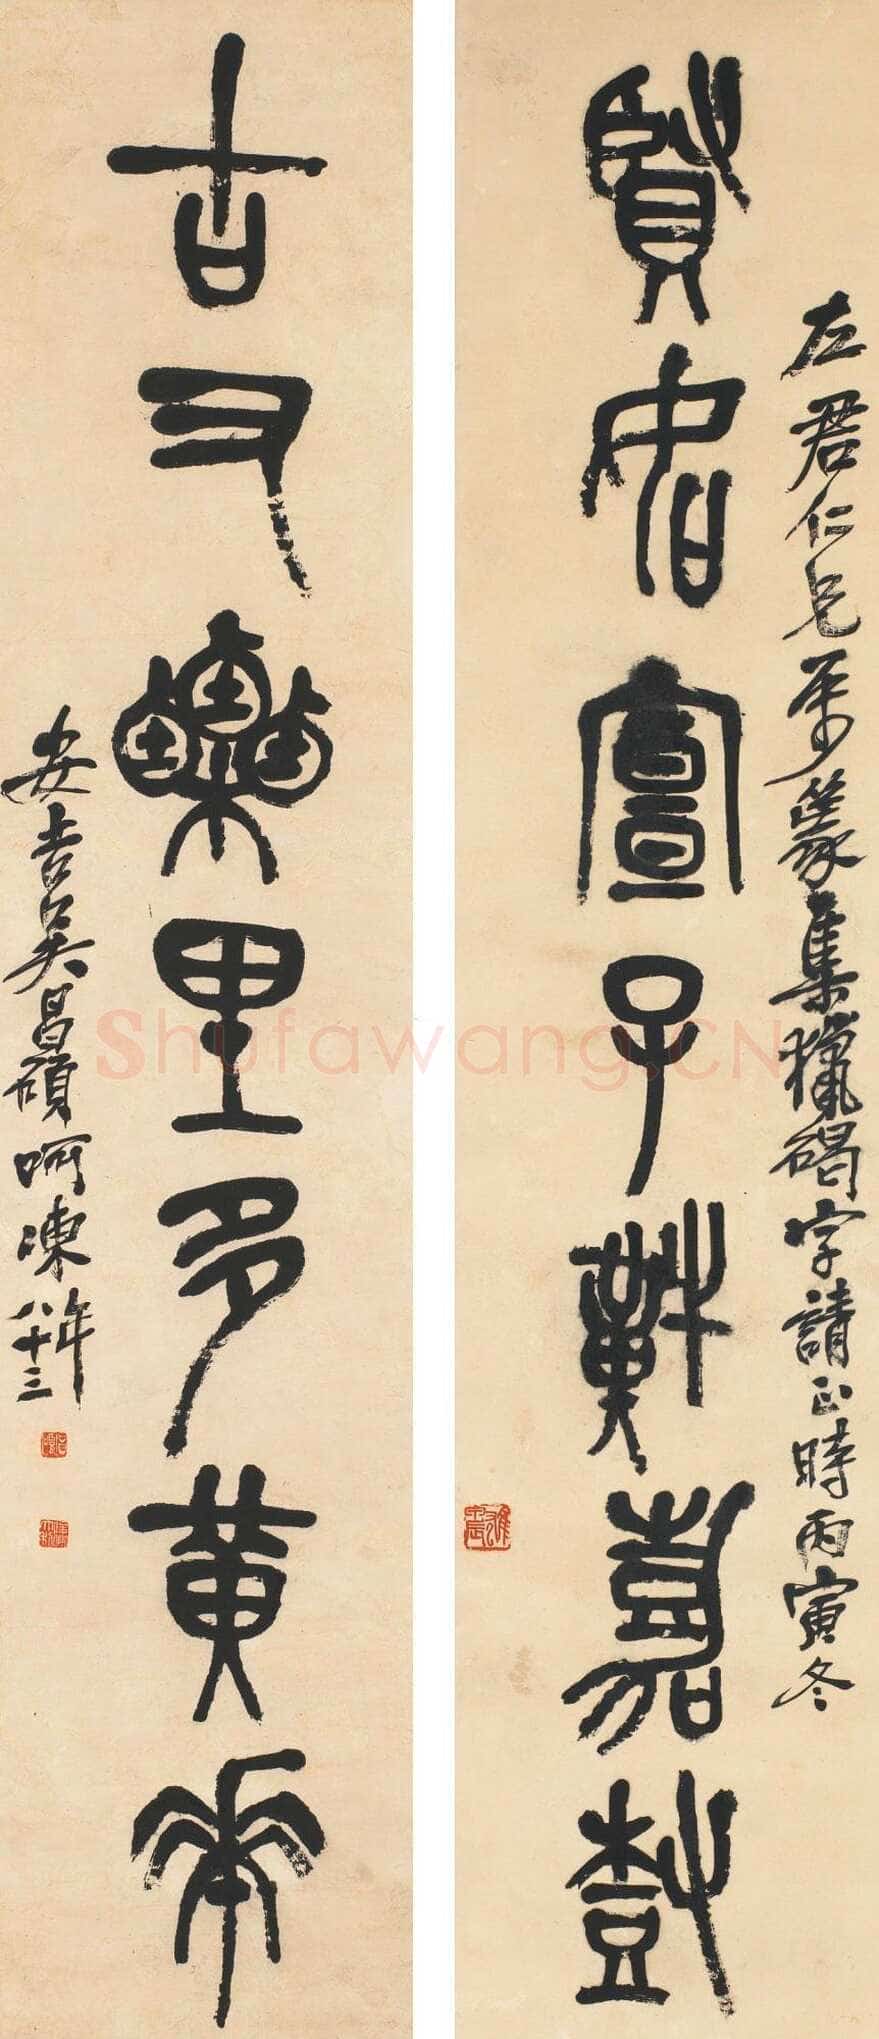 賢如宣子嘉樹
左君仁兄屬篆集獵碣字請正時丙寅冬
古又樂里多黃華
安吉吳昌碩呵凍年八十三
Shufawang.CN